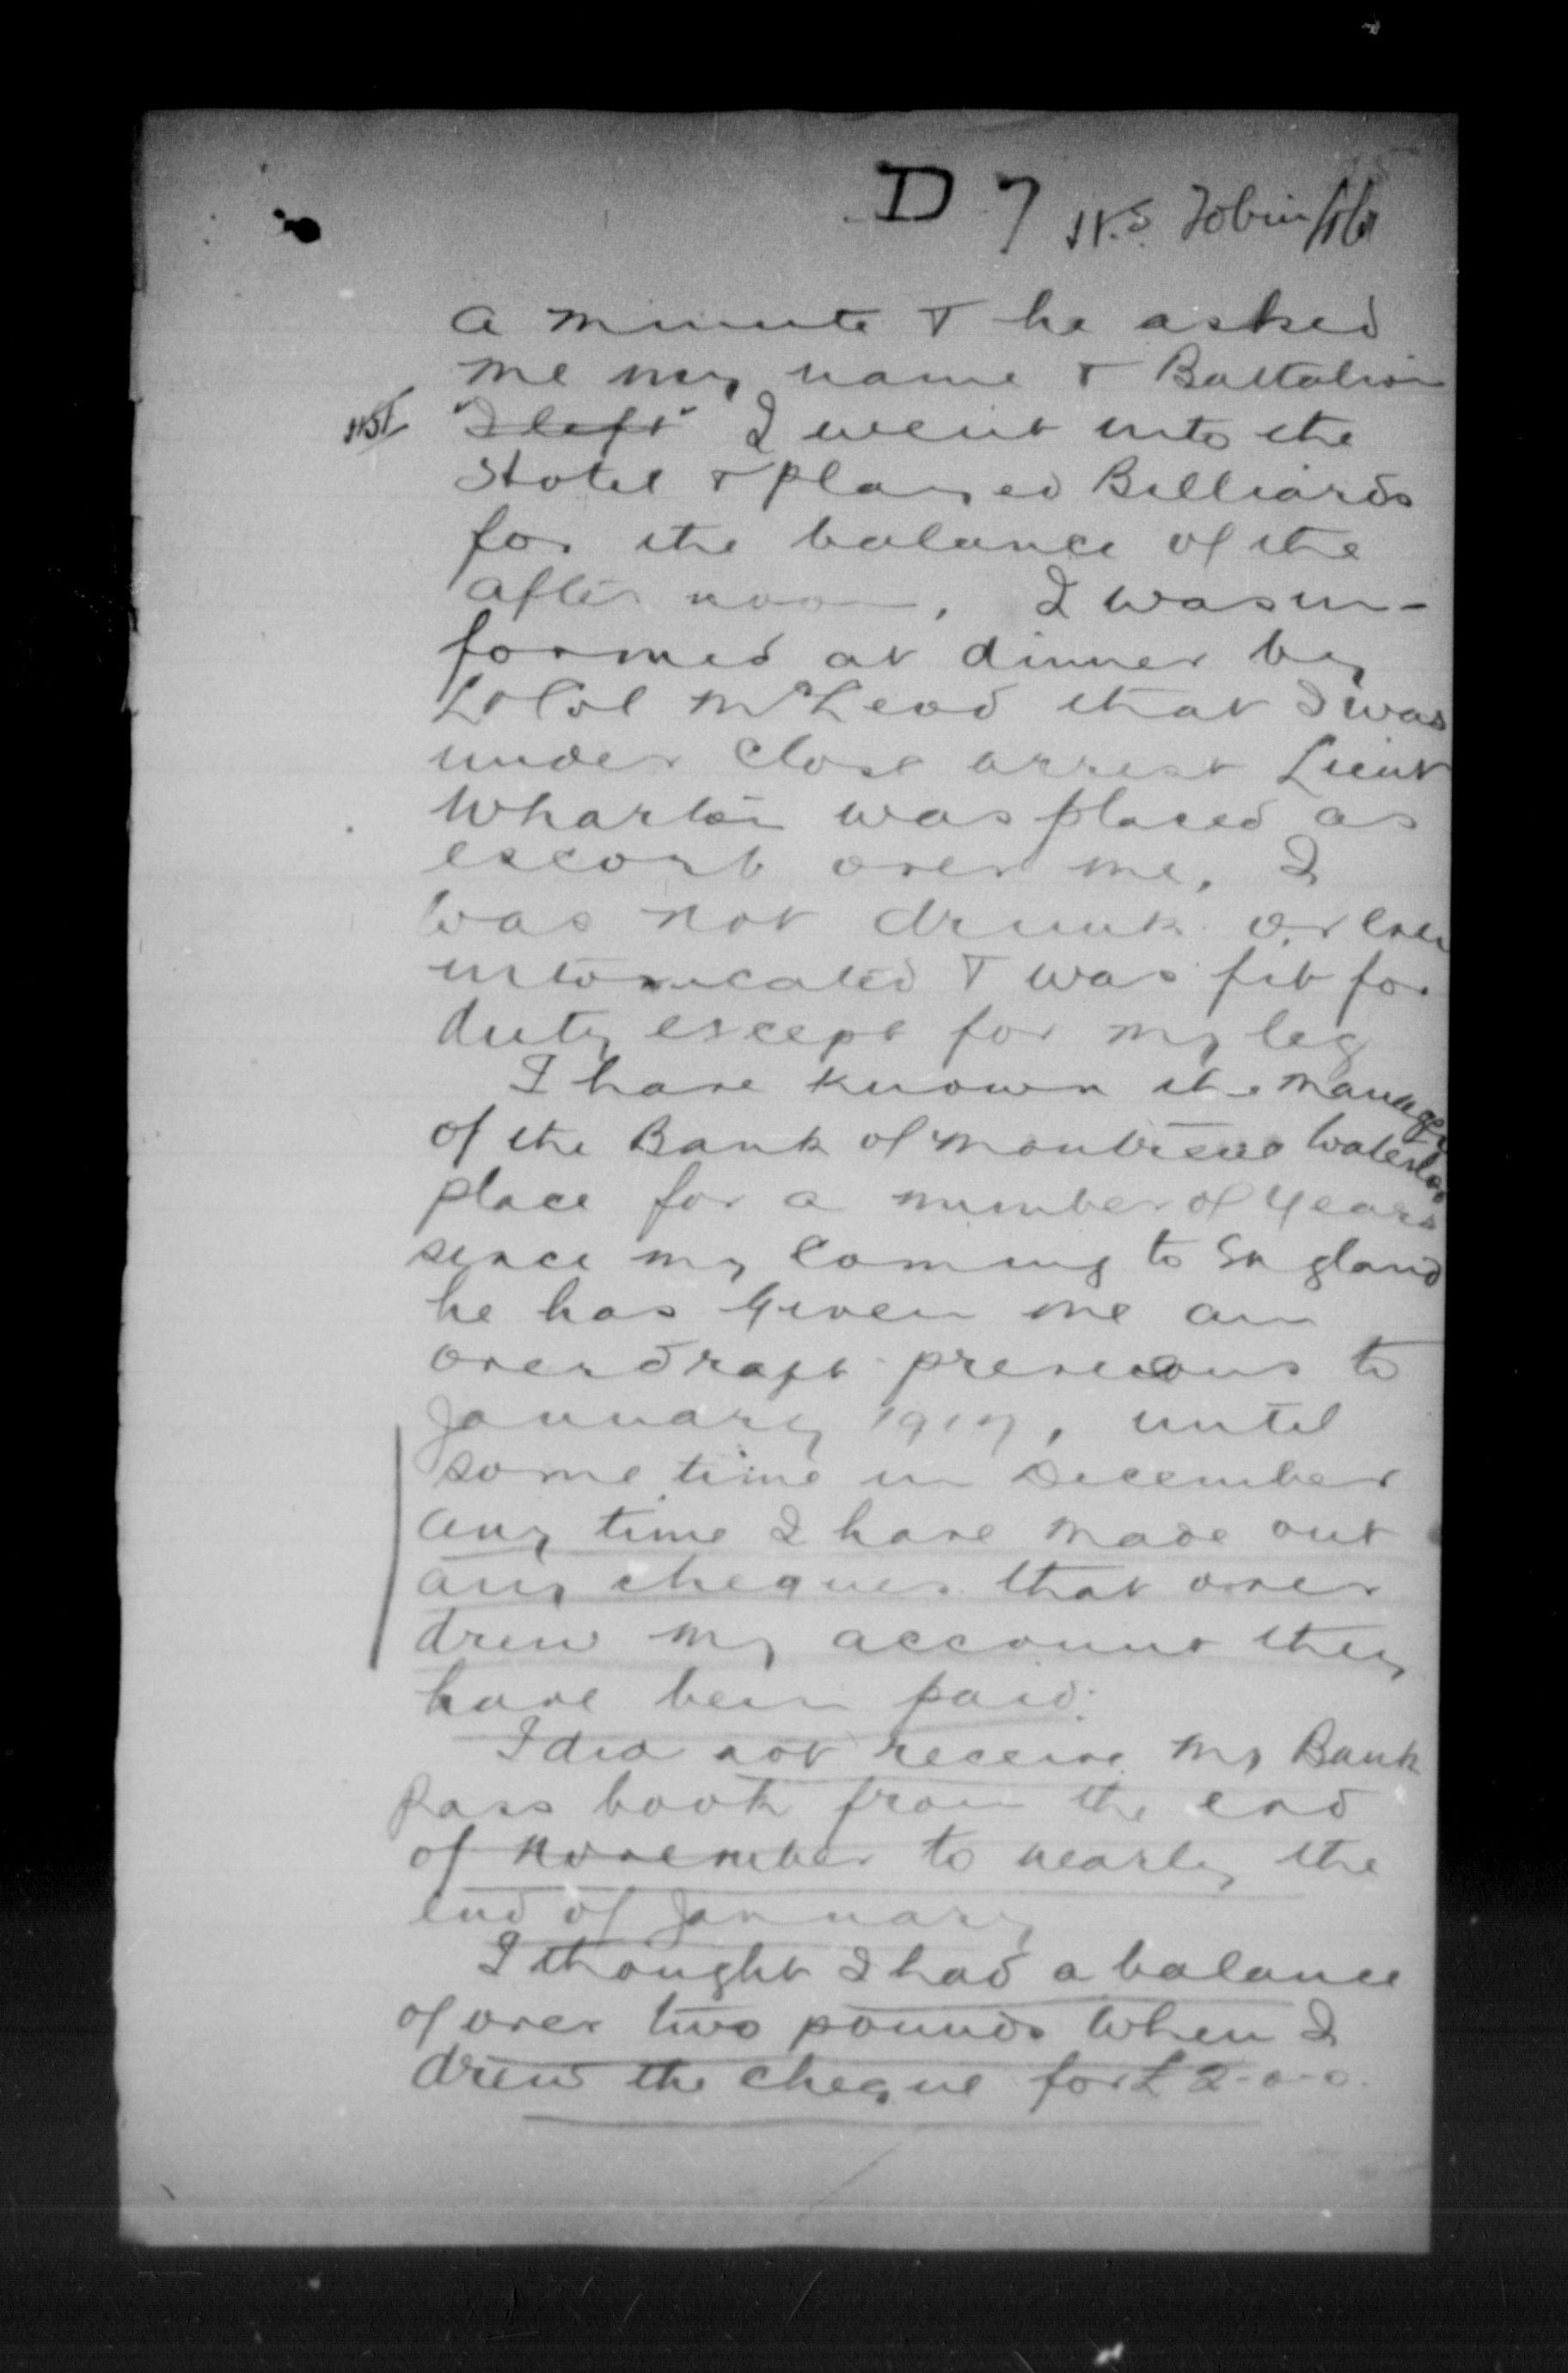 D 7 H.S. Tobin
a minute & he asked
me my name & Battalion
HST "I left" I went into the
Hotel & played Billiards
for the balance of the
after noon, I was in-
formed at dinner by
Lt Col McLeod that I was
under close arrest Lieut
Wharton was placed as
escort over me. I
was not drunk or even
intoxicated & was fit for
duty except for my leg
I have known the Manager
of the Bank of Montreal Waterloo
place for a number of years
since my coming to England
he has given me an
overdraft previous to
January 1917, until
some time in December
any time I have made out
any cheques that over
drew my account they
have been paid.
I did not receive my Bank
Pass book from the end
of November to nearly the
end of January
I thought I had a balance
of over two pounds when I
drew the cheque for £2-0-0.